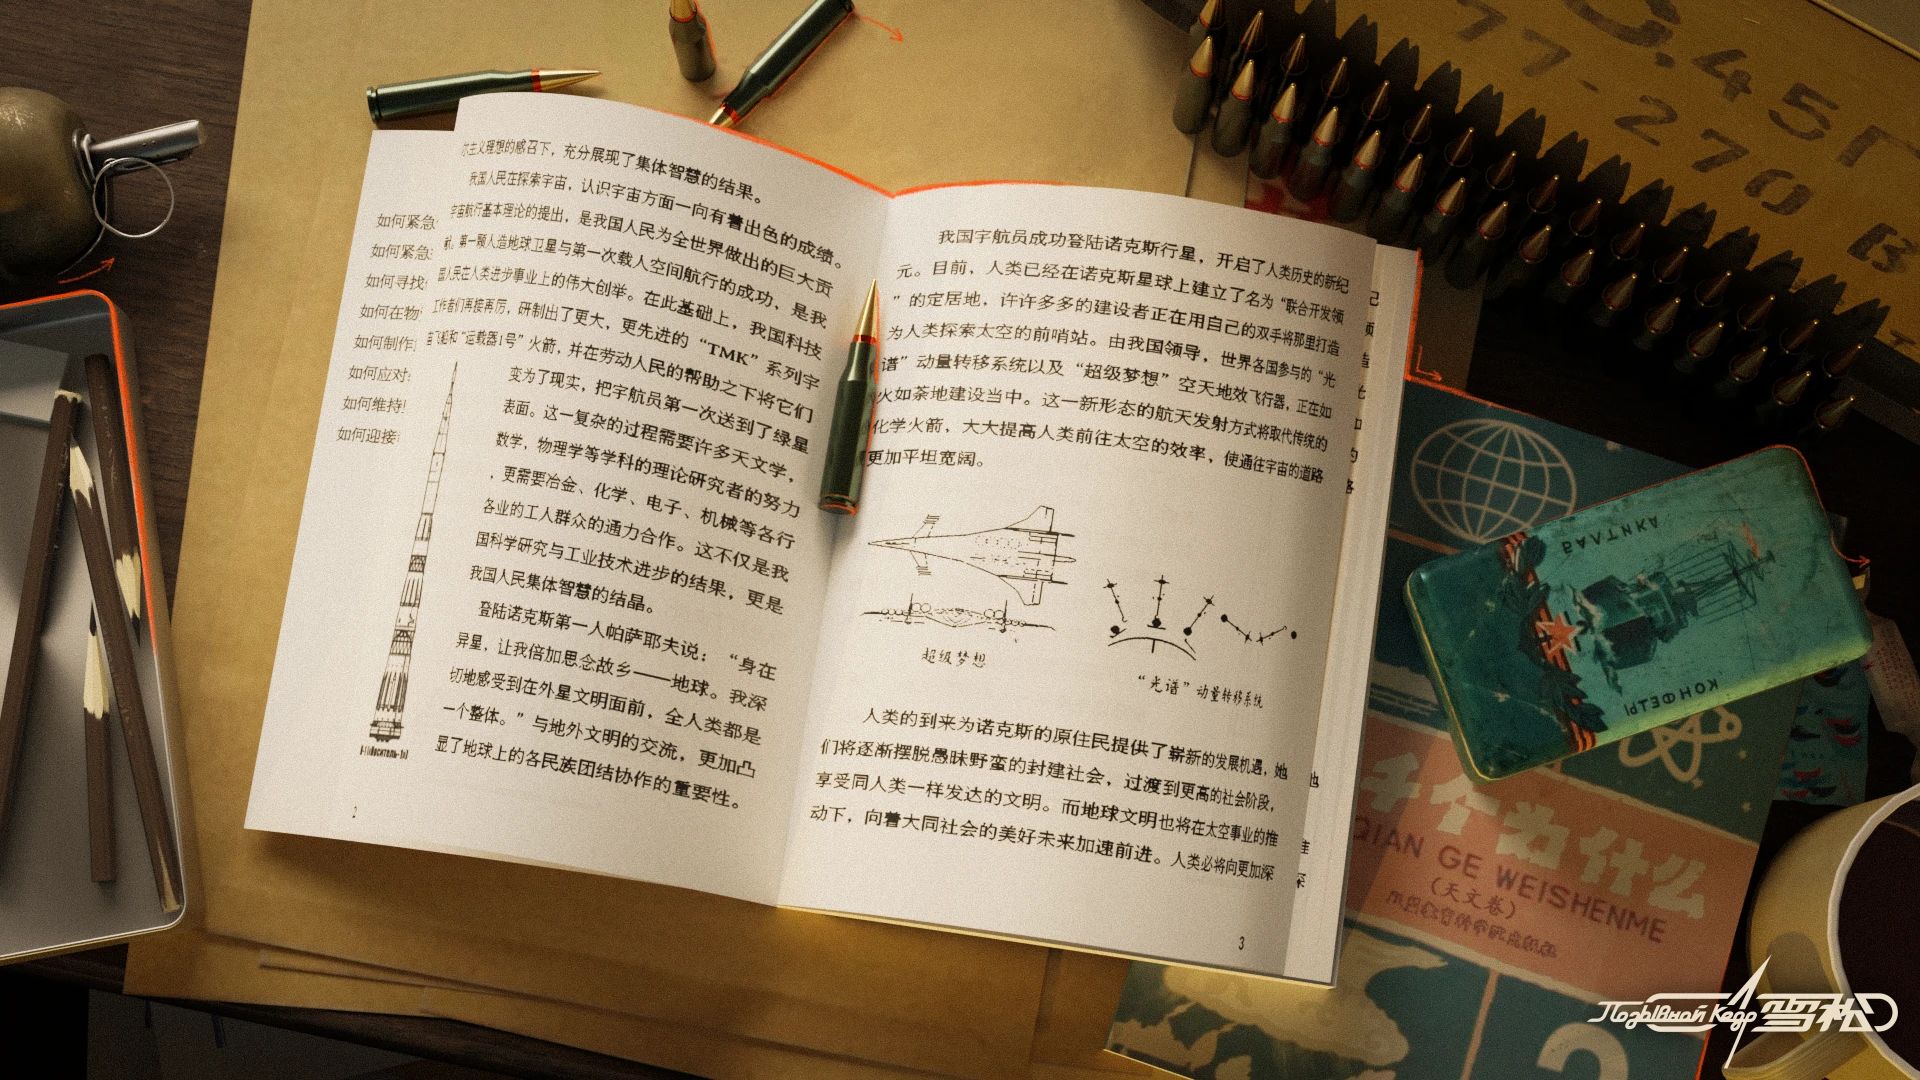 尔主义理想的感召下，充分展现了集体智慧的结果。
我国人民在探索宇宙，认识宇宙方面一向有着出色的成绩。
宇宙航行基本理论的提出，是我国人民为全世界做出的巨大贡
献。第一颗人造地球卫星与第一次载人空间航行的成功，是我
国人民在人类进步事业上的伟大创举。在此基础上，我国科技
工作者们再接再厉，研制出了更大，更先进的“TMK”系列宇
宙飞船和“运载器1号”火箭，并在劳动人民的帮助之下将它们
变为了现实，把宇航员第一次送到了绿星
表面。这一复杂的过程需要许多天文学，
数学，物理学等学科的理论研究者的努力
，更需要冶金、化学、电子、机械等各行
各业的工人群众的通力合作。这不仅是我
国科学研究与工业技术进步的结果，更是
我国人民集体智慧的结晶。
登陆诺克斯第一人帕萨耶夫说：“身在
异星，让我倍加思念故乡——地球。我深
切地感受到在外星文明面前，全人类都是
一个整体。”与地外文明的交流，更加凸
显了地球上的各民族团结协作的重要性。
2
如何紧急
如何紧急
如何寻找
如何在物
如何制作
如何应对
如何维持
如何迎接
我国宇航员成功登陆诺克斯行星，开启了人类历史的新纪
元。目前，人类已经在诺克斯星球上建立了名为“联合开发领
”的定居地，许许多多的建设者正在用自己的双手将那里打造
为人类探索太空的前哨站。由我国领导，世界各国参与的“光
谱”动量转移系统以及“超级梦想”空天地效飞行器，正在如
火如荼地建设当中。这一新形态的航天发射方式将取代传统的
化学火箭，大大提高人类前往太空的效率，使通往宇宙的道路
更加平坦宽阔。
超级梦想
“光谱”动量转移系统
人类的到来为诺克斯的原住民提供了崭新的发展机遇，她
们将逐渐摆脱愚昧野蛮的封建社会，过渡到更高的社会阶段，
享受同人类一样发达的文明。而地球文明也将在太空事业的推
动下，向着大同社会的美好未来加速前进。人类必将向更加深
3
77-270 В
КОНФЕТЫ
千个为什么
QIAN GE WEISHENME
（天文卷）
2
Позывной Кедр
雪松